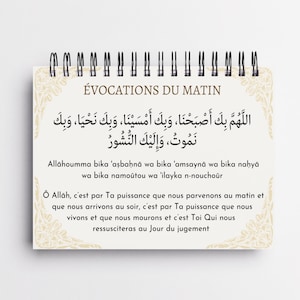 ÉVOCATIONS DU MATIN
اللَّهُمَّ بِكَ أَصْبَحْنَا، وَبِكَ أَمْسَيْنَا، وَبِكَ نَحْيَا، وَبِكَ
نَمُوتُ، وَإِلَيْكَ النُّشُورُ
Allâhoumma bika 'aṣbaḥnâ wa bika 'amsaynâ wa bika naḥyâ
wa bika namoûtou wa 'ilayka n-nouchoûr
Ô Allâh, c'est par Ta puissance que nous parvenons au matin et
que nous arrivons au soir, c'est par Ta puissance que nous
vivons et que nous mourons et c'est Toi Qui nous
ressusciteras au Jour du jugement